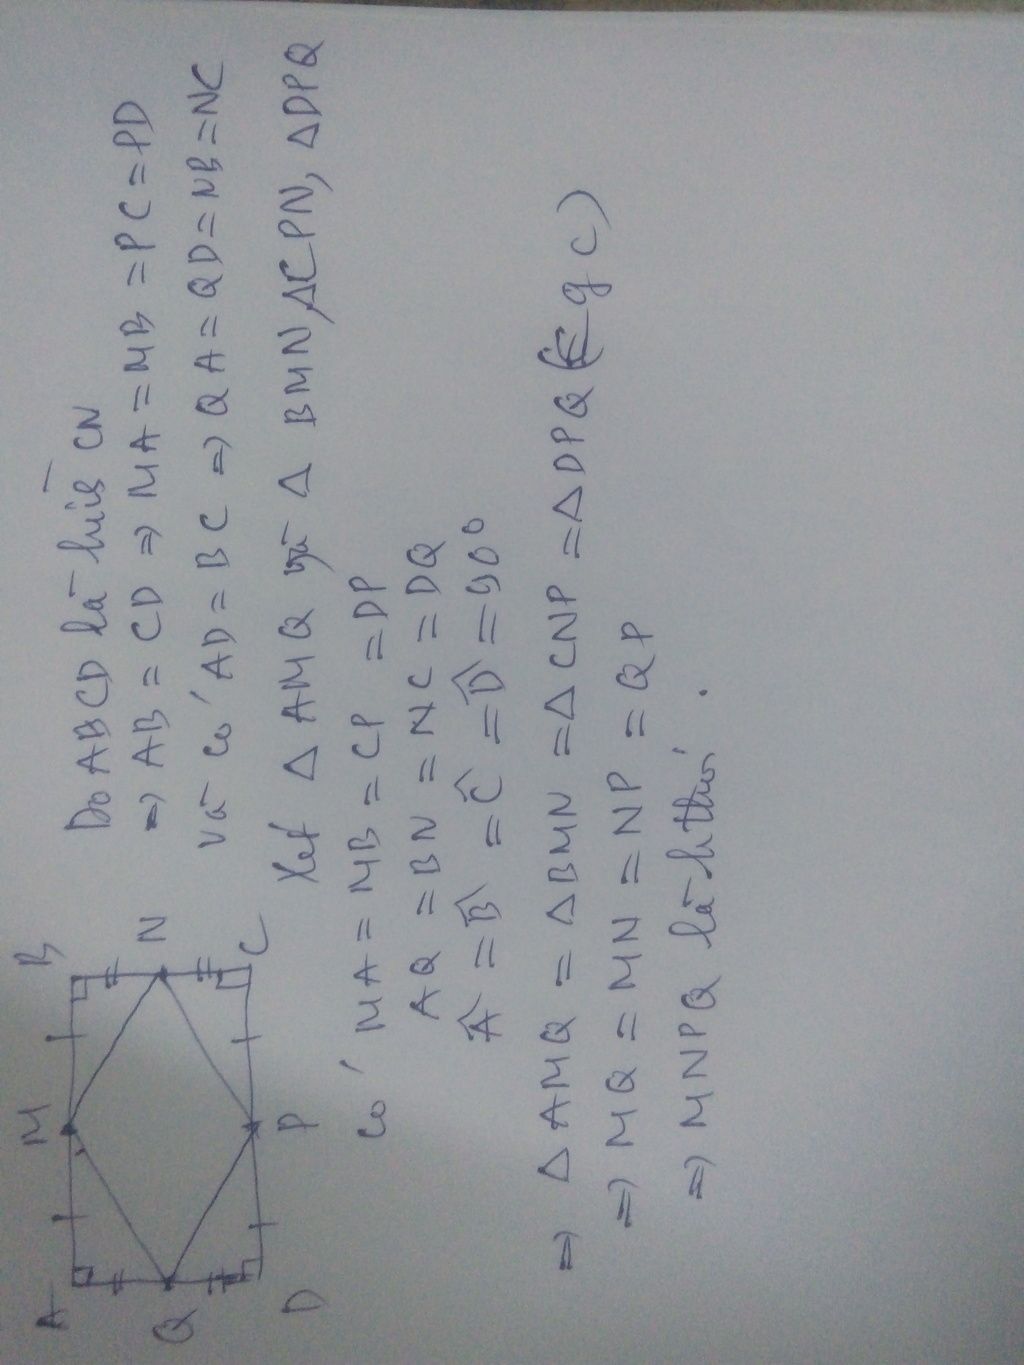 A M B
Q N
D P C
Do ABCD là hình CN
⇒ AB = CD ⇒ MA = MB = PC = PD
Và có AD = BC ⇒ QA = QD = NB = NC
Xét Δ AMQ và Δ BMN, ΔCPN, ΔDPQ
Có MA = MB = CP = DP
AQ = BN = NC = DQ
Â = B̂ = Ĉ = D̂ = 90°
⇒ Δ AMQ = ΔBMN = ΔCNP = ΔDPQ (c g c)
⇒ MQ = MN = NP = QP
⇒ MNPQ là hthoi.